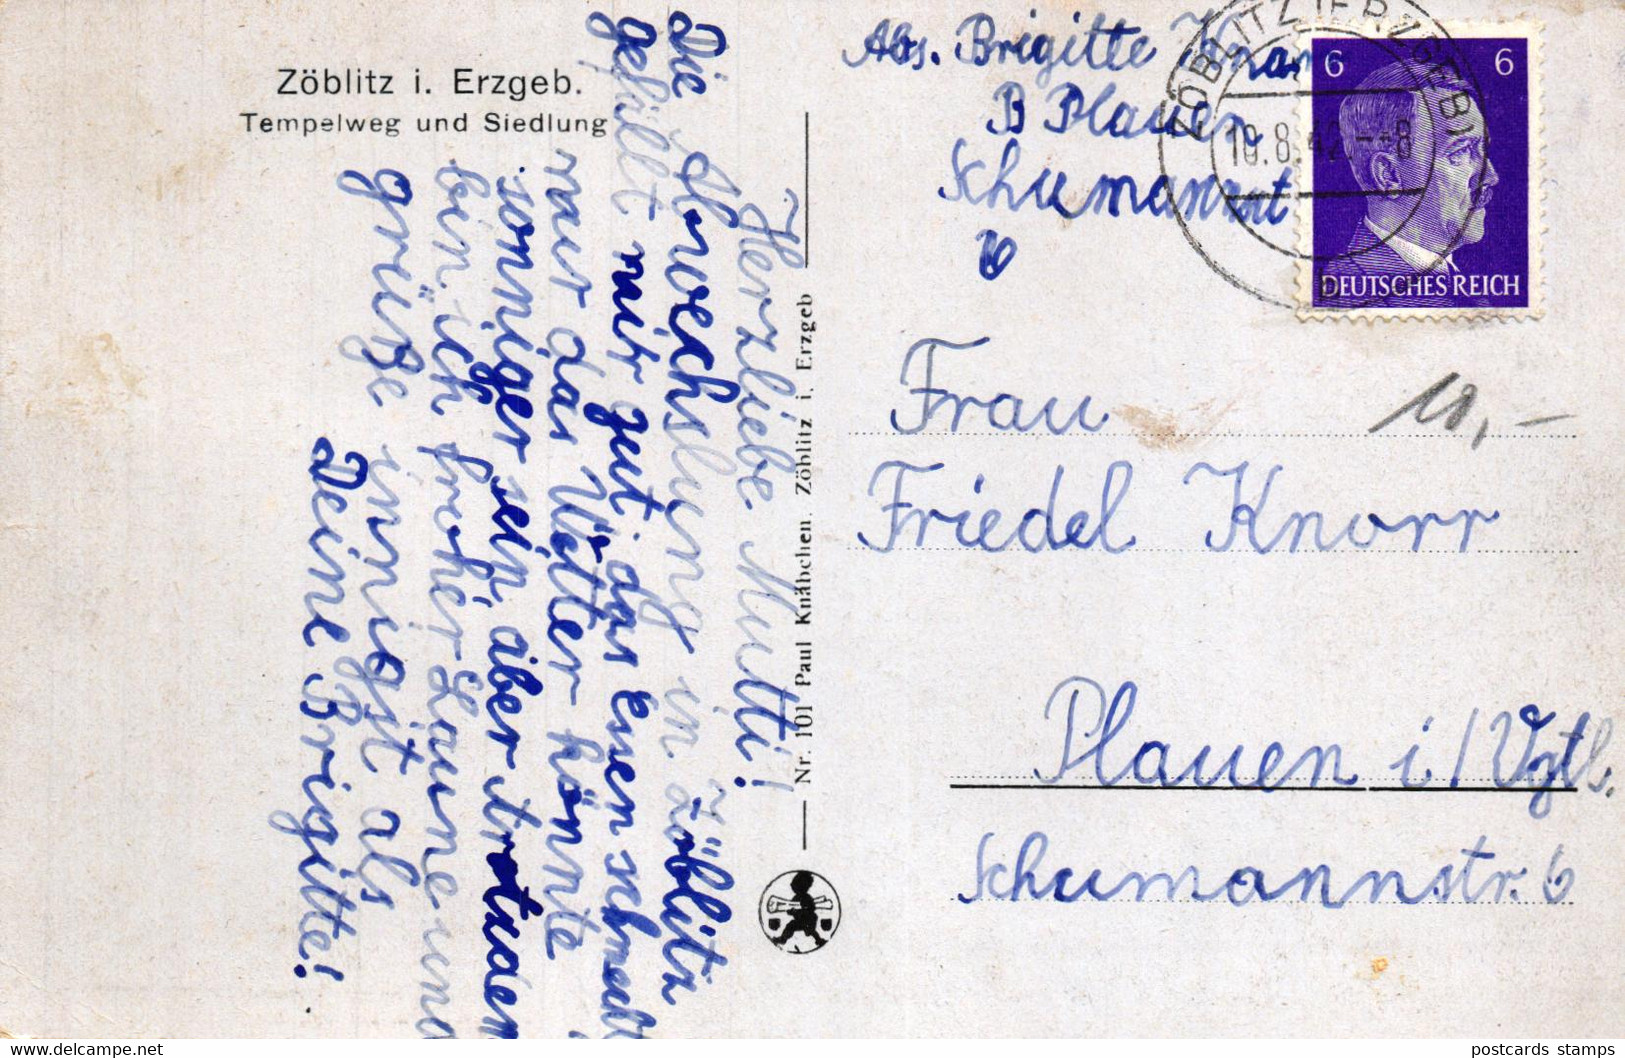 Zöblitz i. Erzgeb.
Tempelweg und Siedlung
Herzliebe Mutti!
Die Abwechslung in Zöblitz
gefällt mir gut das
nur das Wetter könnte
sonniger sein aber trotzdem
bin ich froher Laune und
grüße innigst als
Deine Brigitte!
Nr. 101 Paul Knäbchen, Zöblitz i. Erzgeb
Abs. Brigitte
Plauen
Schumannstr
6
ZÖBLITZ (ERZGEB)
.8.42.-8
b
6 6
DEUTSCHES REICH
10,-
Frau
Friedel Knorr
Plauen i/Vgtl.
Schumannstr. 6
postcards stamps